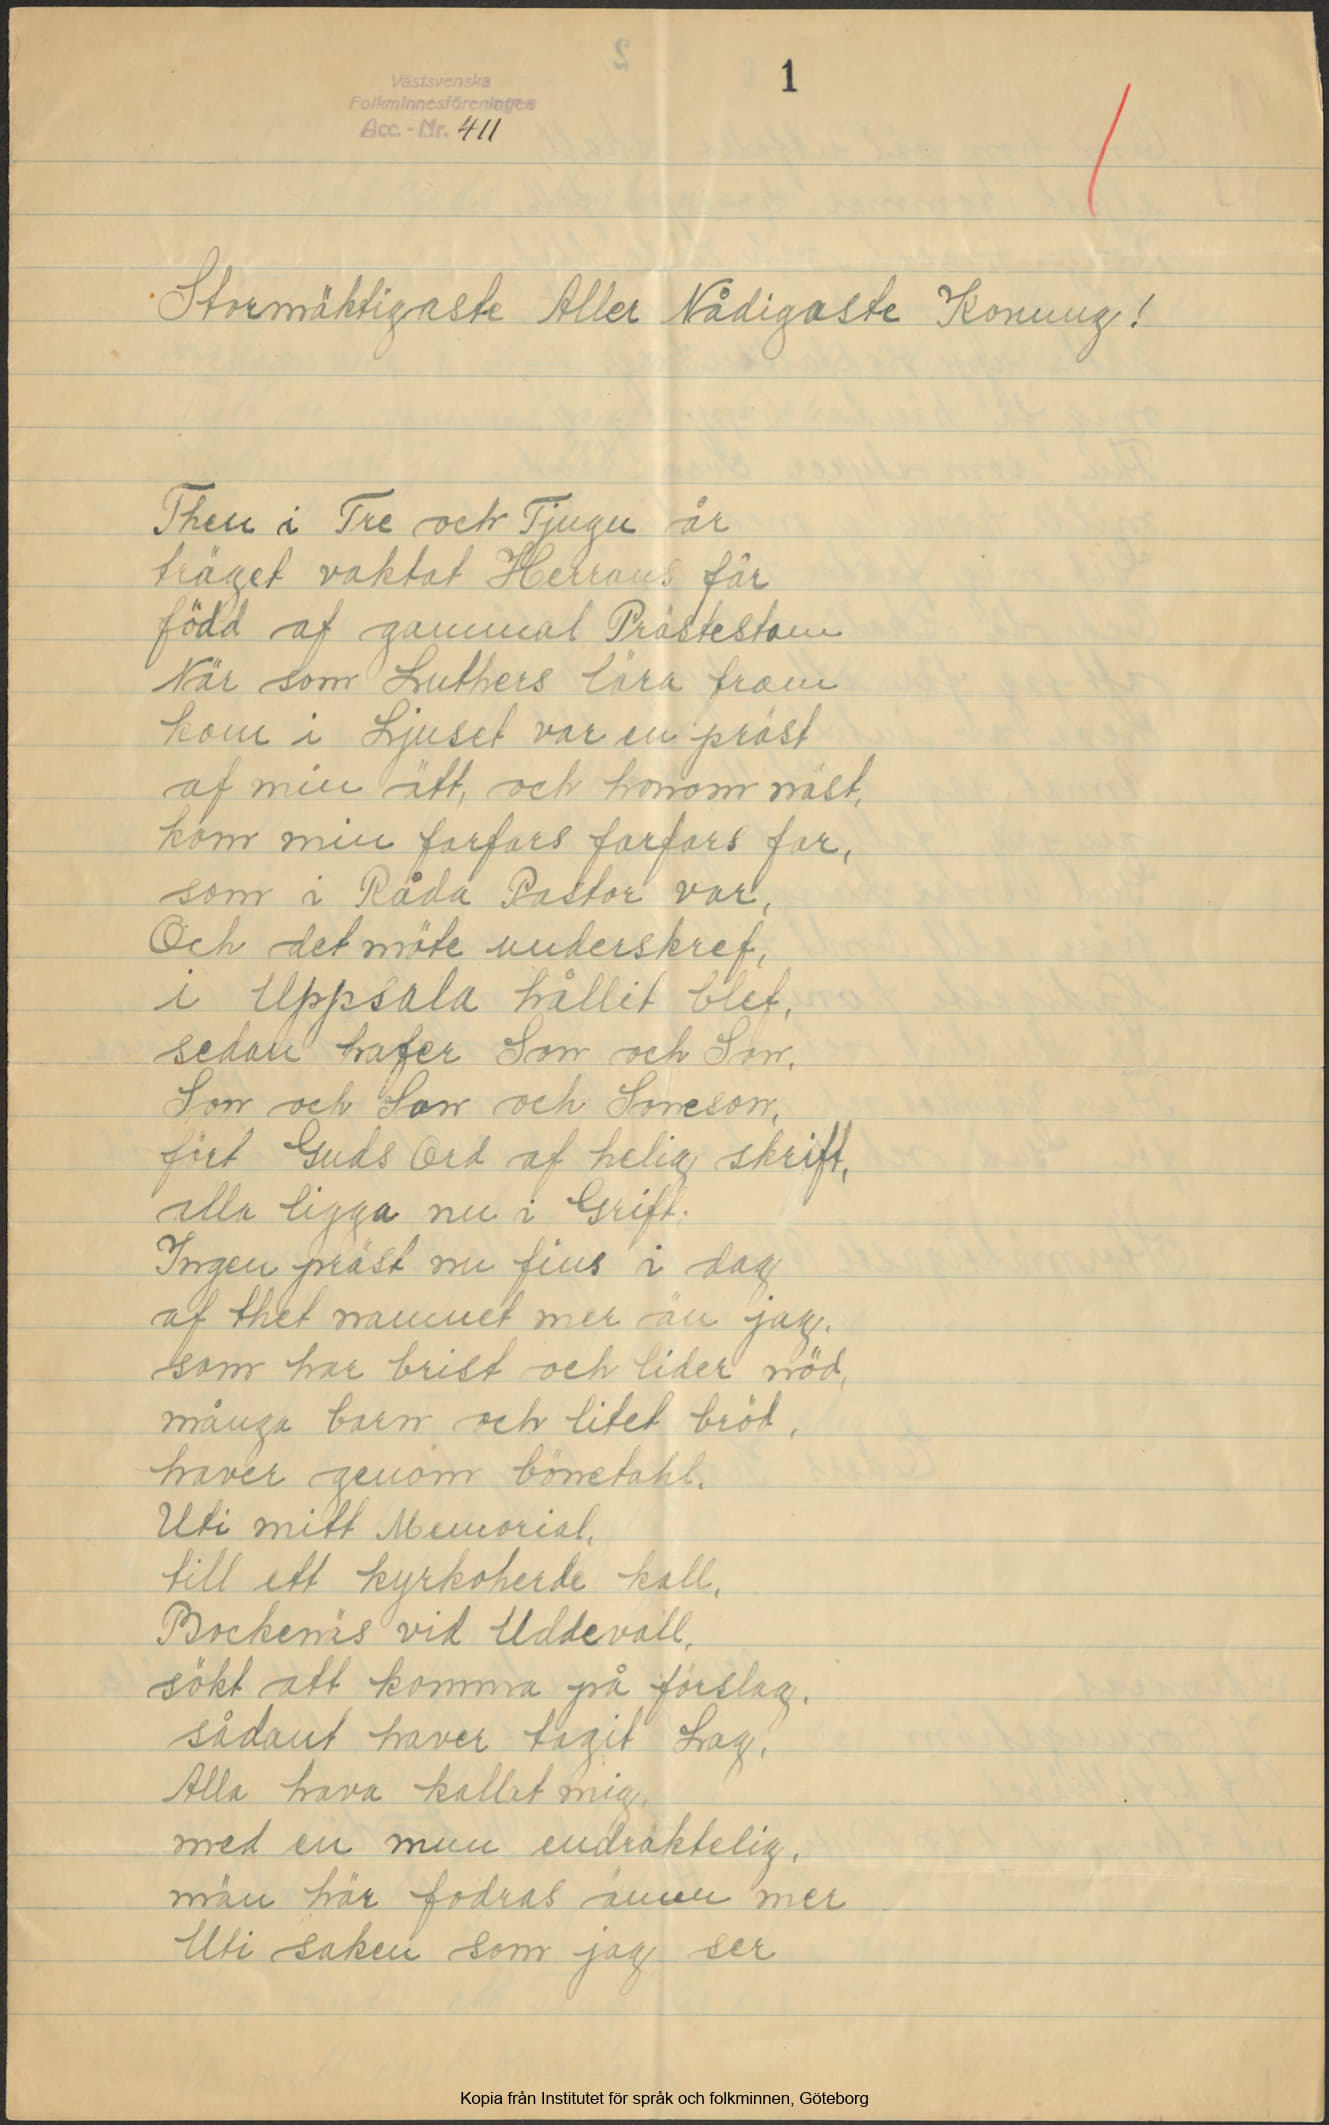 1
Västsvenska
Folkminnesföreningen
Acc.-Nr. 411
Stormäktigaste Aller Nådigaste Konung!
Then i Tre och Tjugu år
träget vaktat Herrans får
född af gammal Prästestam
När som Luthers lära fram
kom i Ljuset var en präst
af min ätt, och honom näst,
kom min farfars farfars far,
som i Råda Pastor var,
Och det möte underskref,
i Uppsala hållit blef,
sedan hafer Son och Son,
Son och Son och Soneson,
fört Guds Ord af helig skrift,
alla ligga nu i Grift.
Ingen präst nu fins i dag
af thet namnet mer än jag.
som har brist och lider nöd,
många barn och litet bröd,
haver genom bönetahl.
Uti mitt Memorial,
till ett kyrkoherde kall,
Bockenäs vid Uddevall,
sökt att komma på förslag.
sådant haver tagit Lag,
Alla hava kallat mig,
med en mun endräktelig,
män här fodras ännu mer
Uti saken som jag ser
Kopia från Institutet för språk och folkminnen, Göteborg